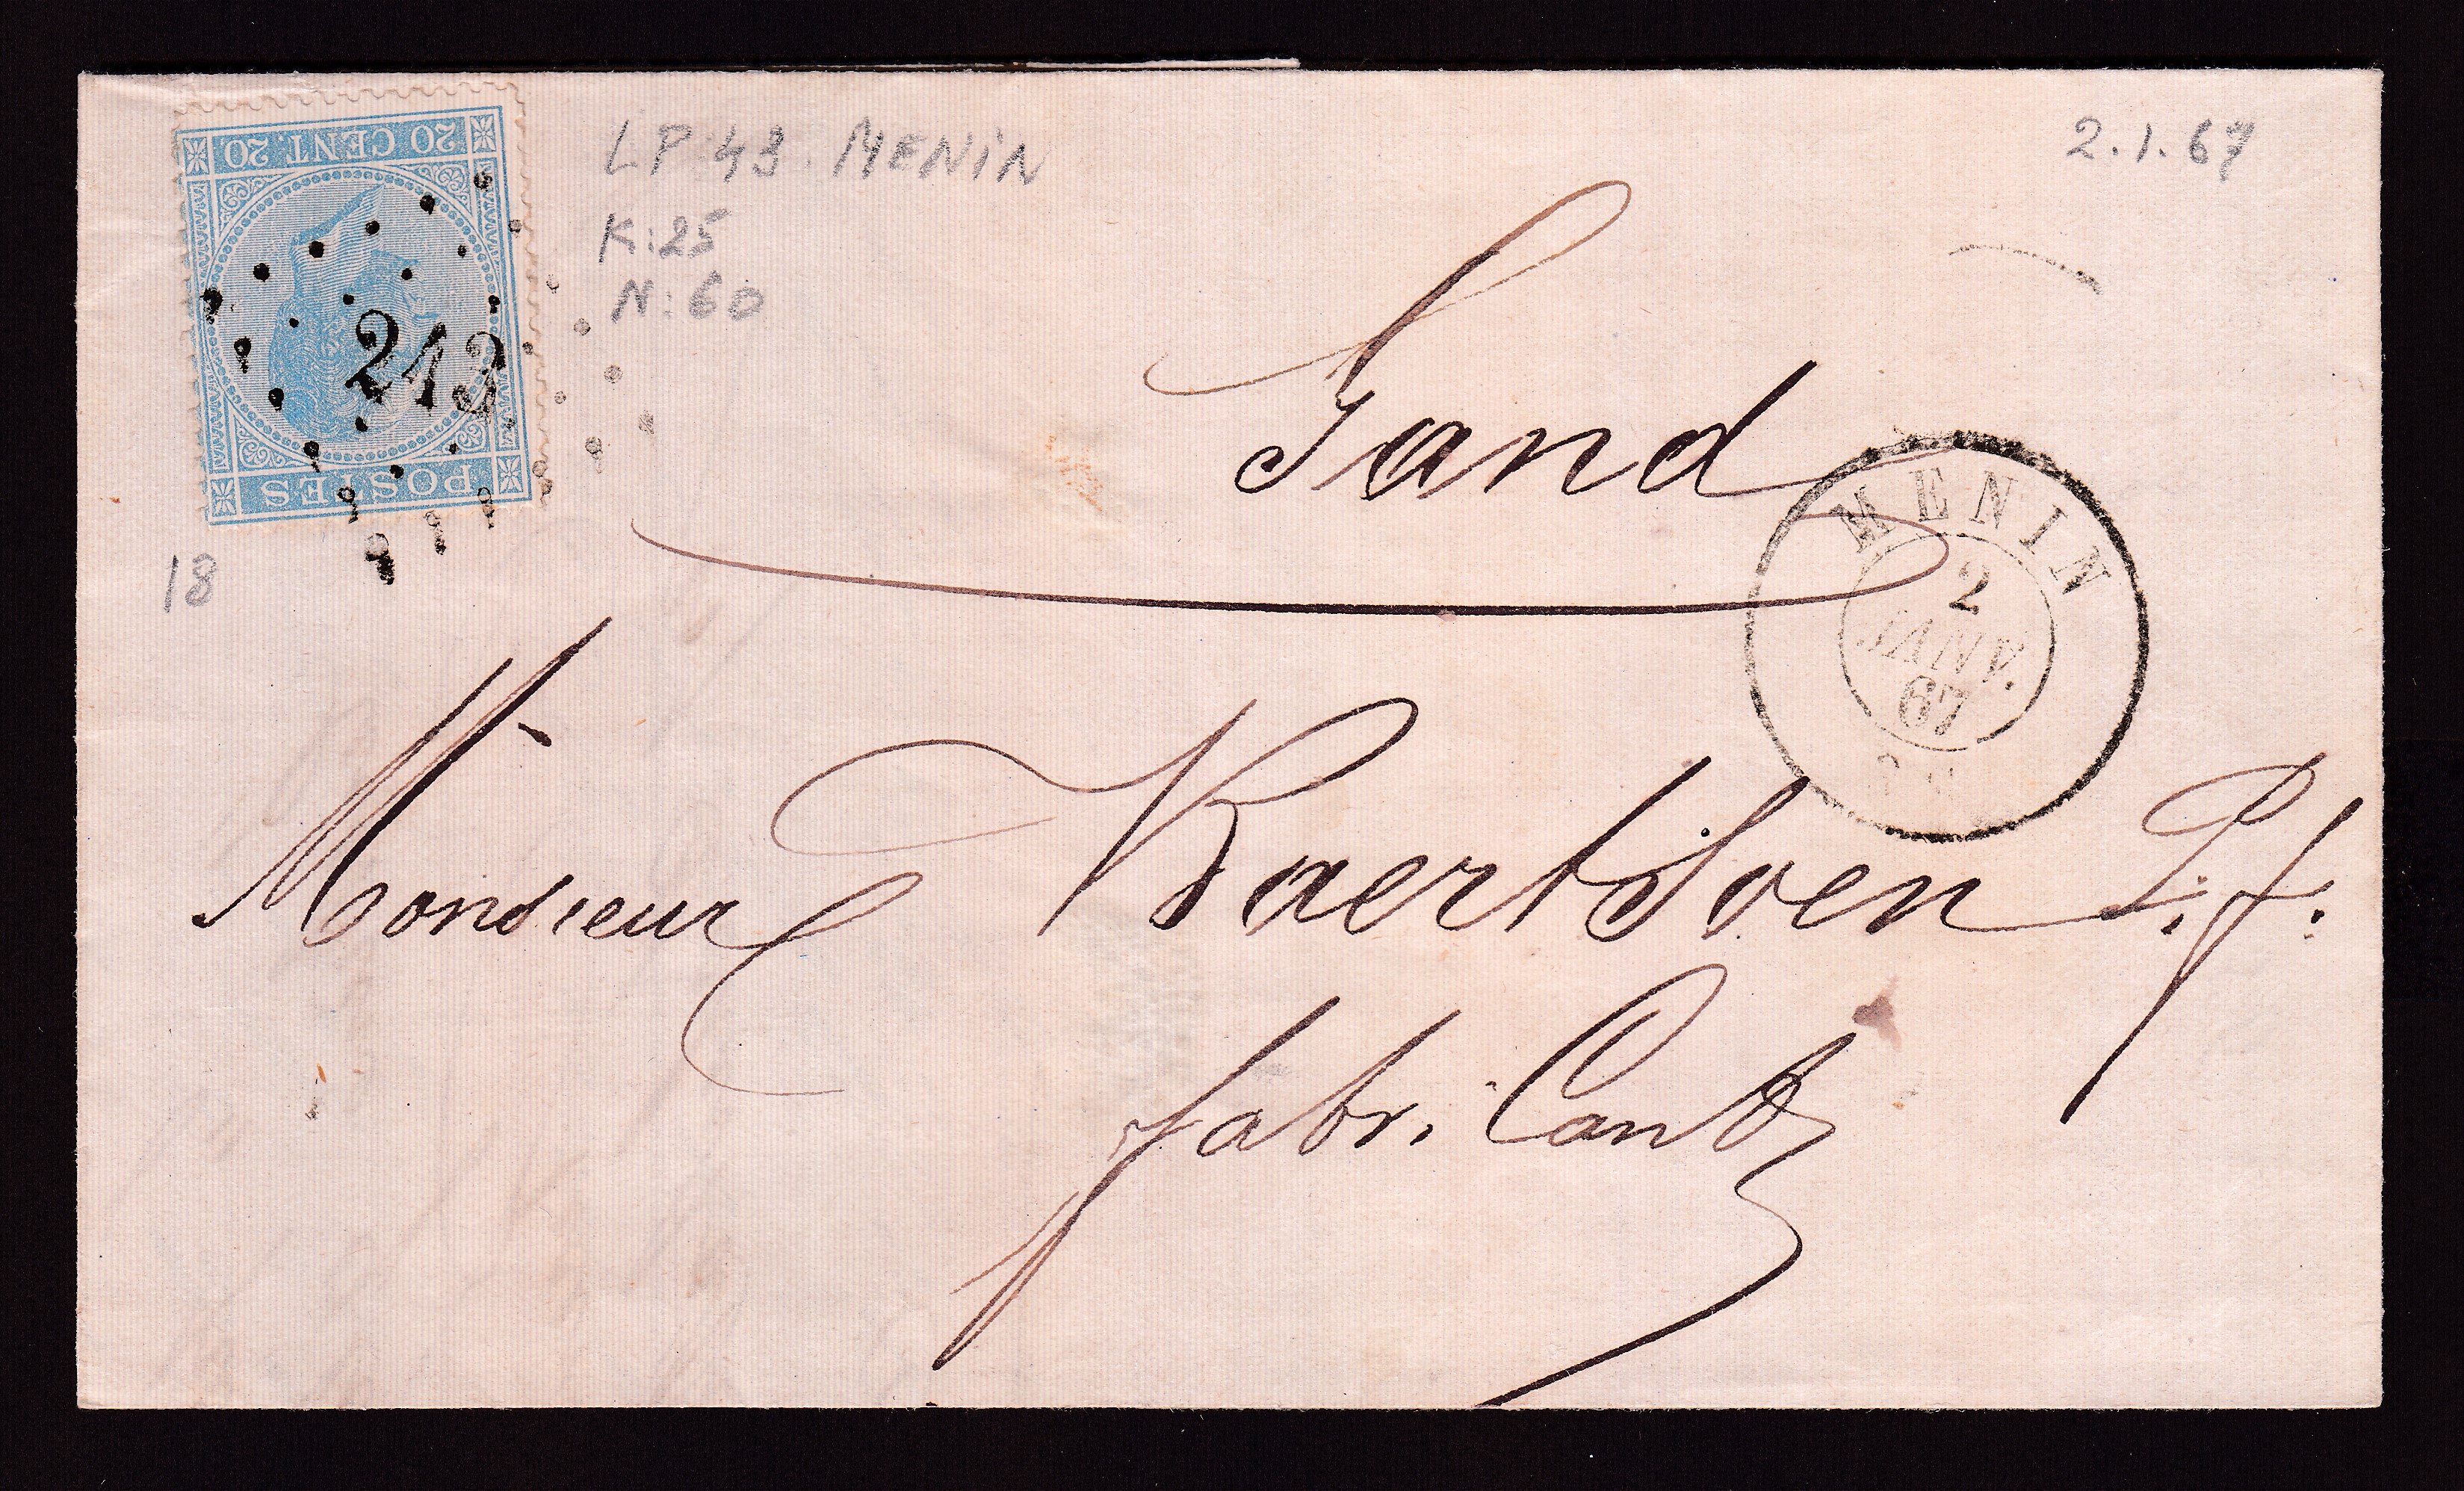 20 CENT. 20
POSTES
243
LP 43. MENIN
K: 25
N: 60
2.1.67
18
Gand
MENIN
2
JANV.
67
Monsieur Kaertsoen
fabricant